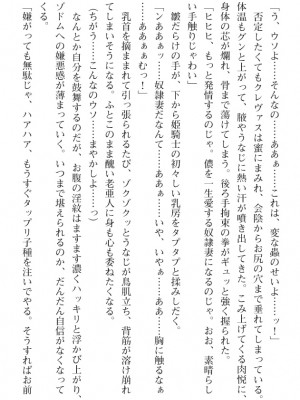 「う、ウソよ、そんな……あぁーー……これは、変な蟲のせいよ……っ」
　否定したくてもクレヴァスは蜜にまみれ、会陰からお尻の穴まで垂れてしまっている。
体温もグンと上がって、腋やうなじに熱い汗が噴き出してきた。こみ上げてくる肉悦に、
身体の芯が爛れ、骨まで蕩けてしまう。後ろ手拘束の拳がギュッと強く握られた。
「ヒヒヒ、もっと発情するのじゃ。儂を一生愛する奴隷妻になるのじゃ。おお、素晴らし
い手触りじゃわい」
　皺だらけの手が、下から姫騎士の初々しい乳房をタプタプと揉みしだく。
「ンああぁッ……奴隷妻だなんて……ああ……いや、いやぁ……ああ……胸に触るなぁ
……あああぁむっ！」
　乳首を摘ままれて引っ張られるたび、ゾクゾクッとうなじが鳥肌立ち、背筋が溶け崩れ
てしまいそうになる。ふとこのまま醜い老亜人に身も心も委ねたくなる。
（ちがう……こんなのウソ……まやかしよ……っ）
　なんとか自分を鼓舞するのだが、お腹の淫紋はますます濃くハッキリと浮かび上がり、
ゾドムへの嫌悪感が薄まっていく。いつまで堪えられるのか、だんだん自信がなくなって
くる。
「嫌がっても無駄じゃ、ハアハア、もうすぐタップリ子種を注いでやる。そうすればお前